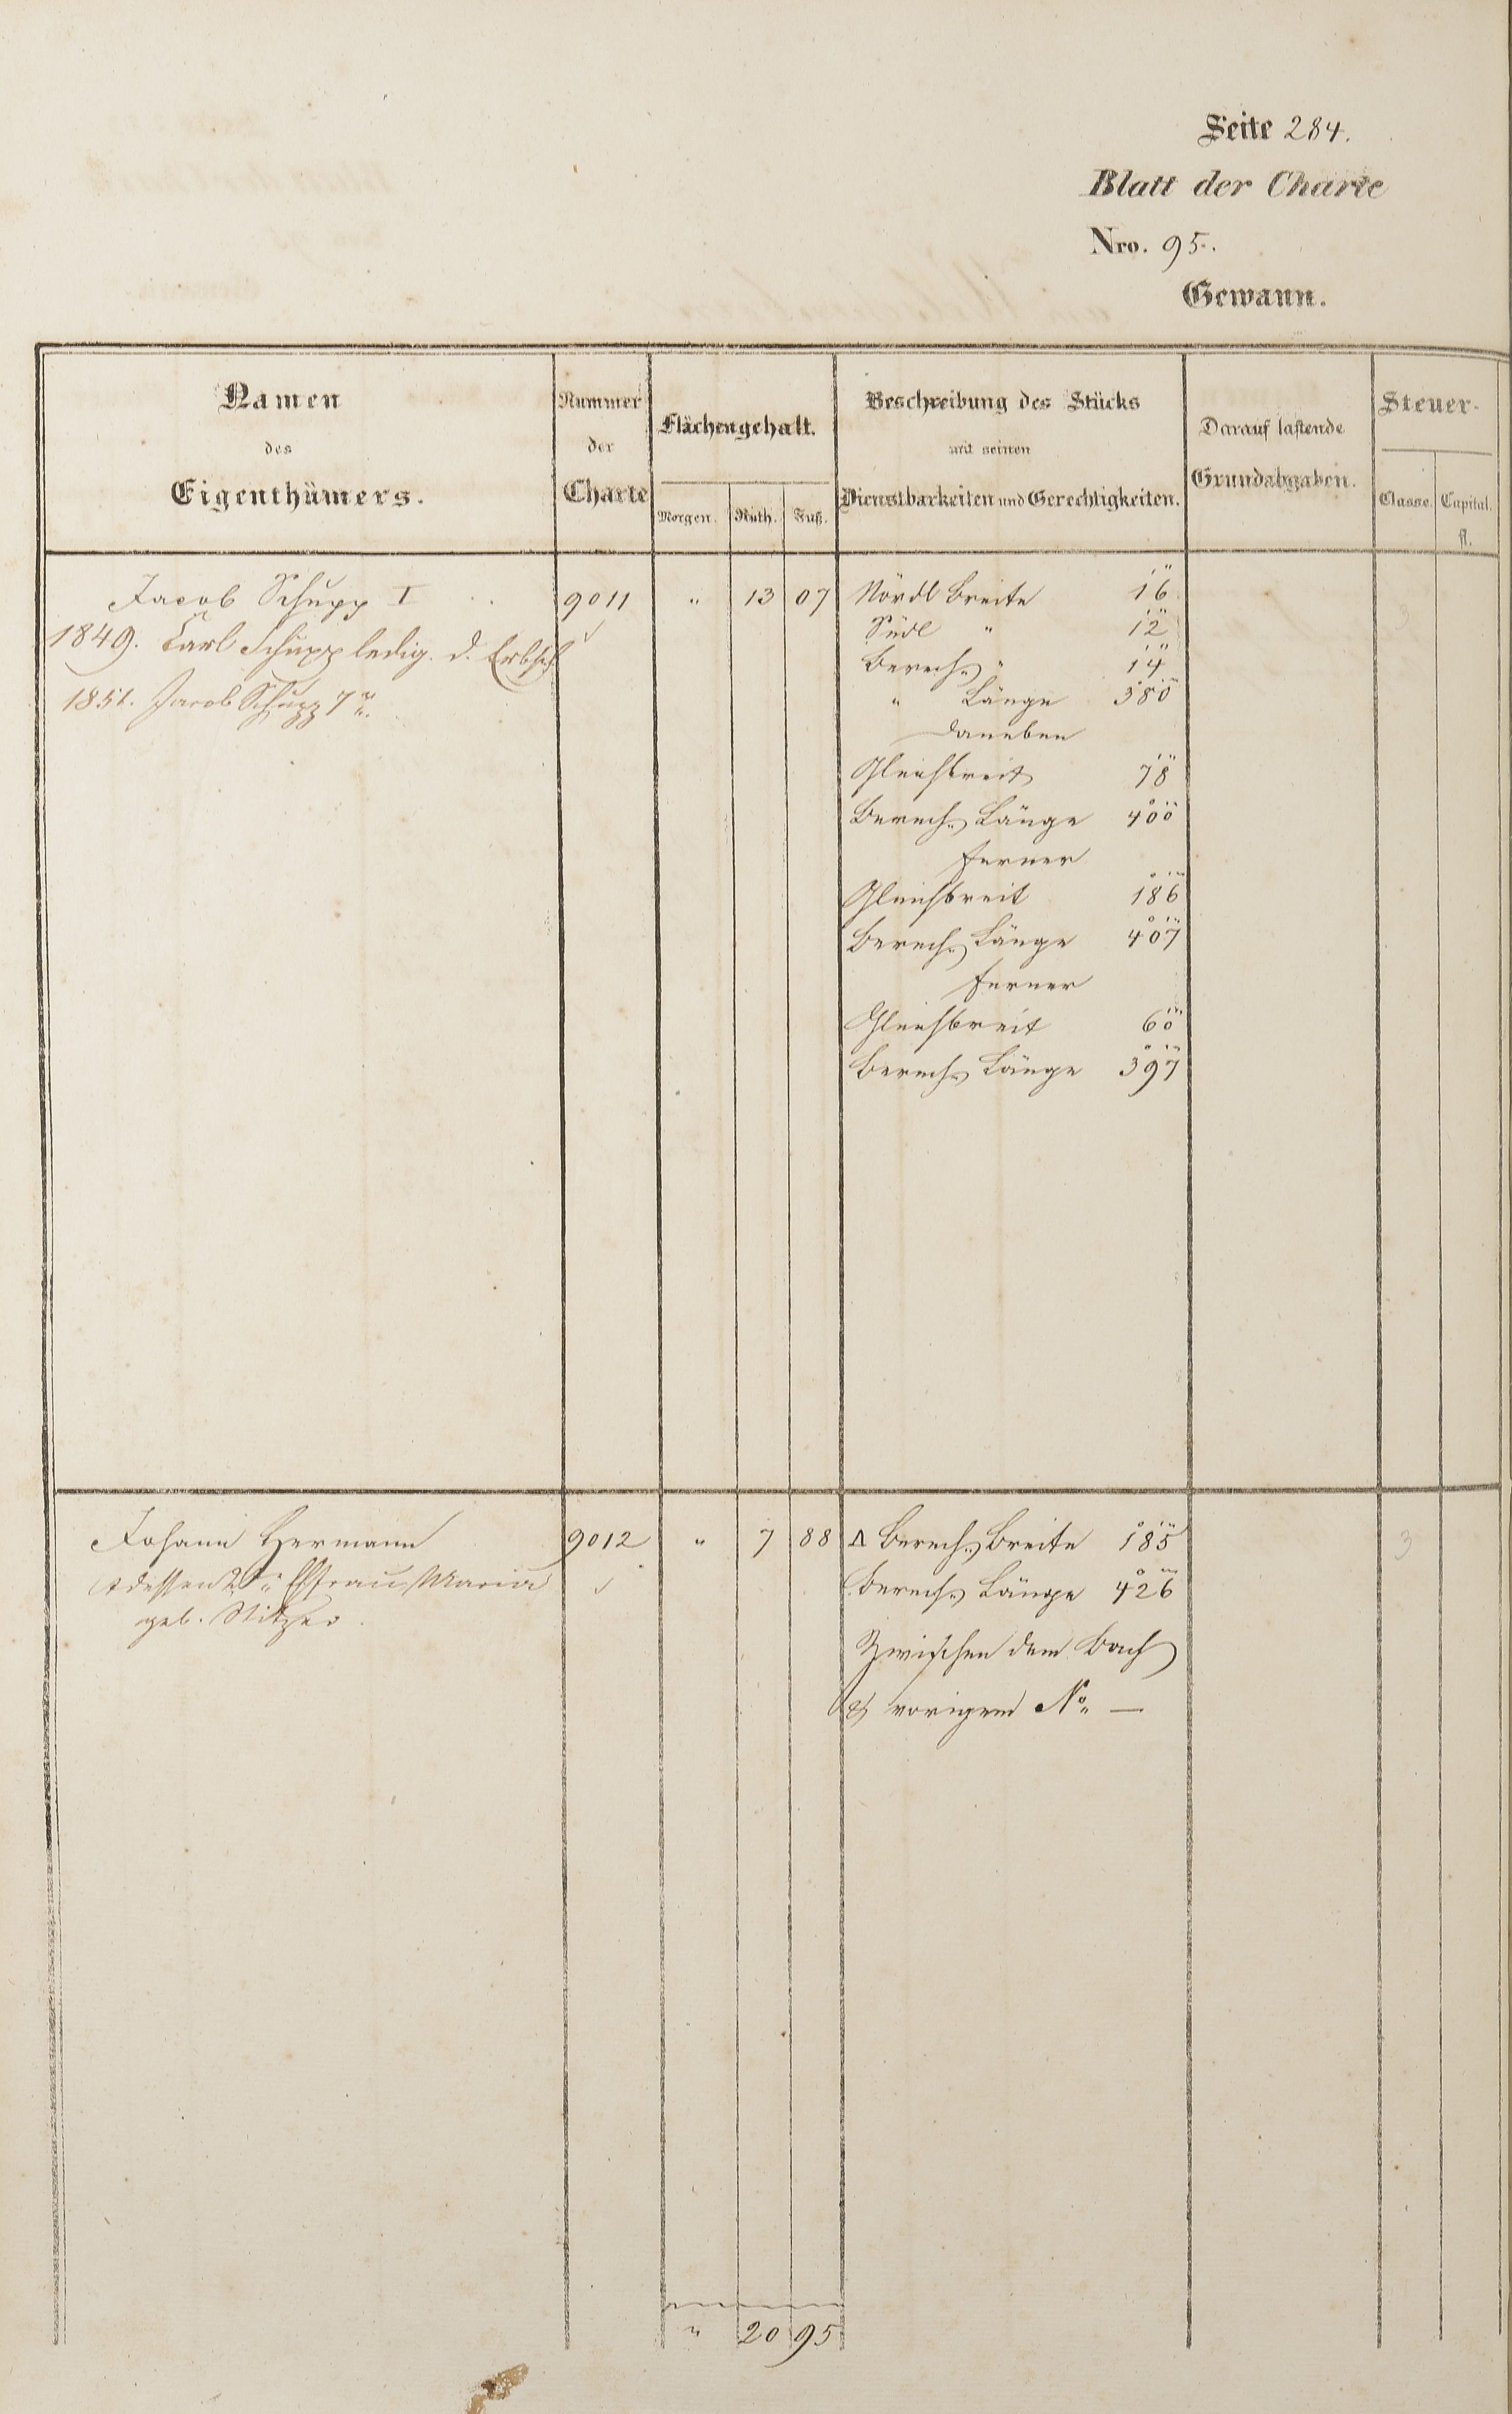 Seite 284.
Blatt der Charte
Nro. 95.
Gewann.
Namen
des
Eigenthümers.
Nummer
der
Charte
Flächengehalt.
Morgen. Ruth. Fuß.
Beschreibung des Stücks
mit seinen
Dienstbarkeiten und Gerechtigkeiten.
Darauf lastende
Grundabgaben.
Steuer-
Classe. Capital.
fl.
Jacob Schupp I 9011 " 13 07 Nördl Breite 16
1849. Carl Schupp ledig. d. Erbsch. Südl " 12
Berech. " 14
1851. Jacob Schupp 7r. " Länge 380
daneben
Gleichbreit 78
Berech. Länge 400
ferner
Gleichbreit 186
Berech. Länge 407
ferner
Gleichbreit 60
Berech. Länge 397
Johann Hermann 9012 " 7 88 Δ Berech. Breite 185 3
dessen 2te Ehfrau Maria Berech. Länge 426
geb.
Zwischen dem Bach
& vorigem No. —
" 20 95